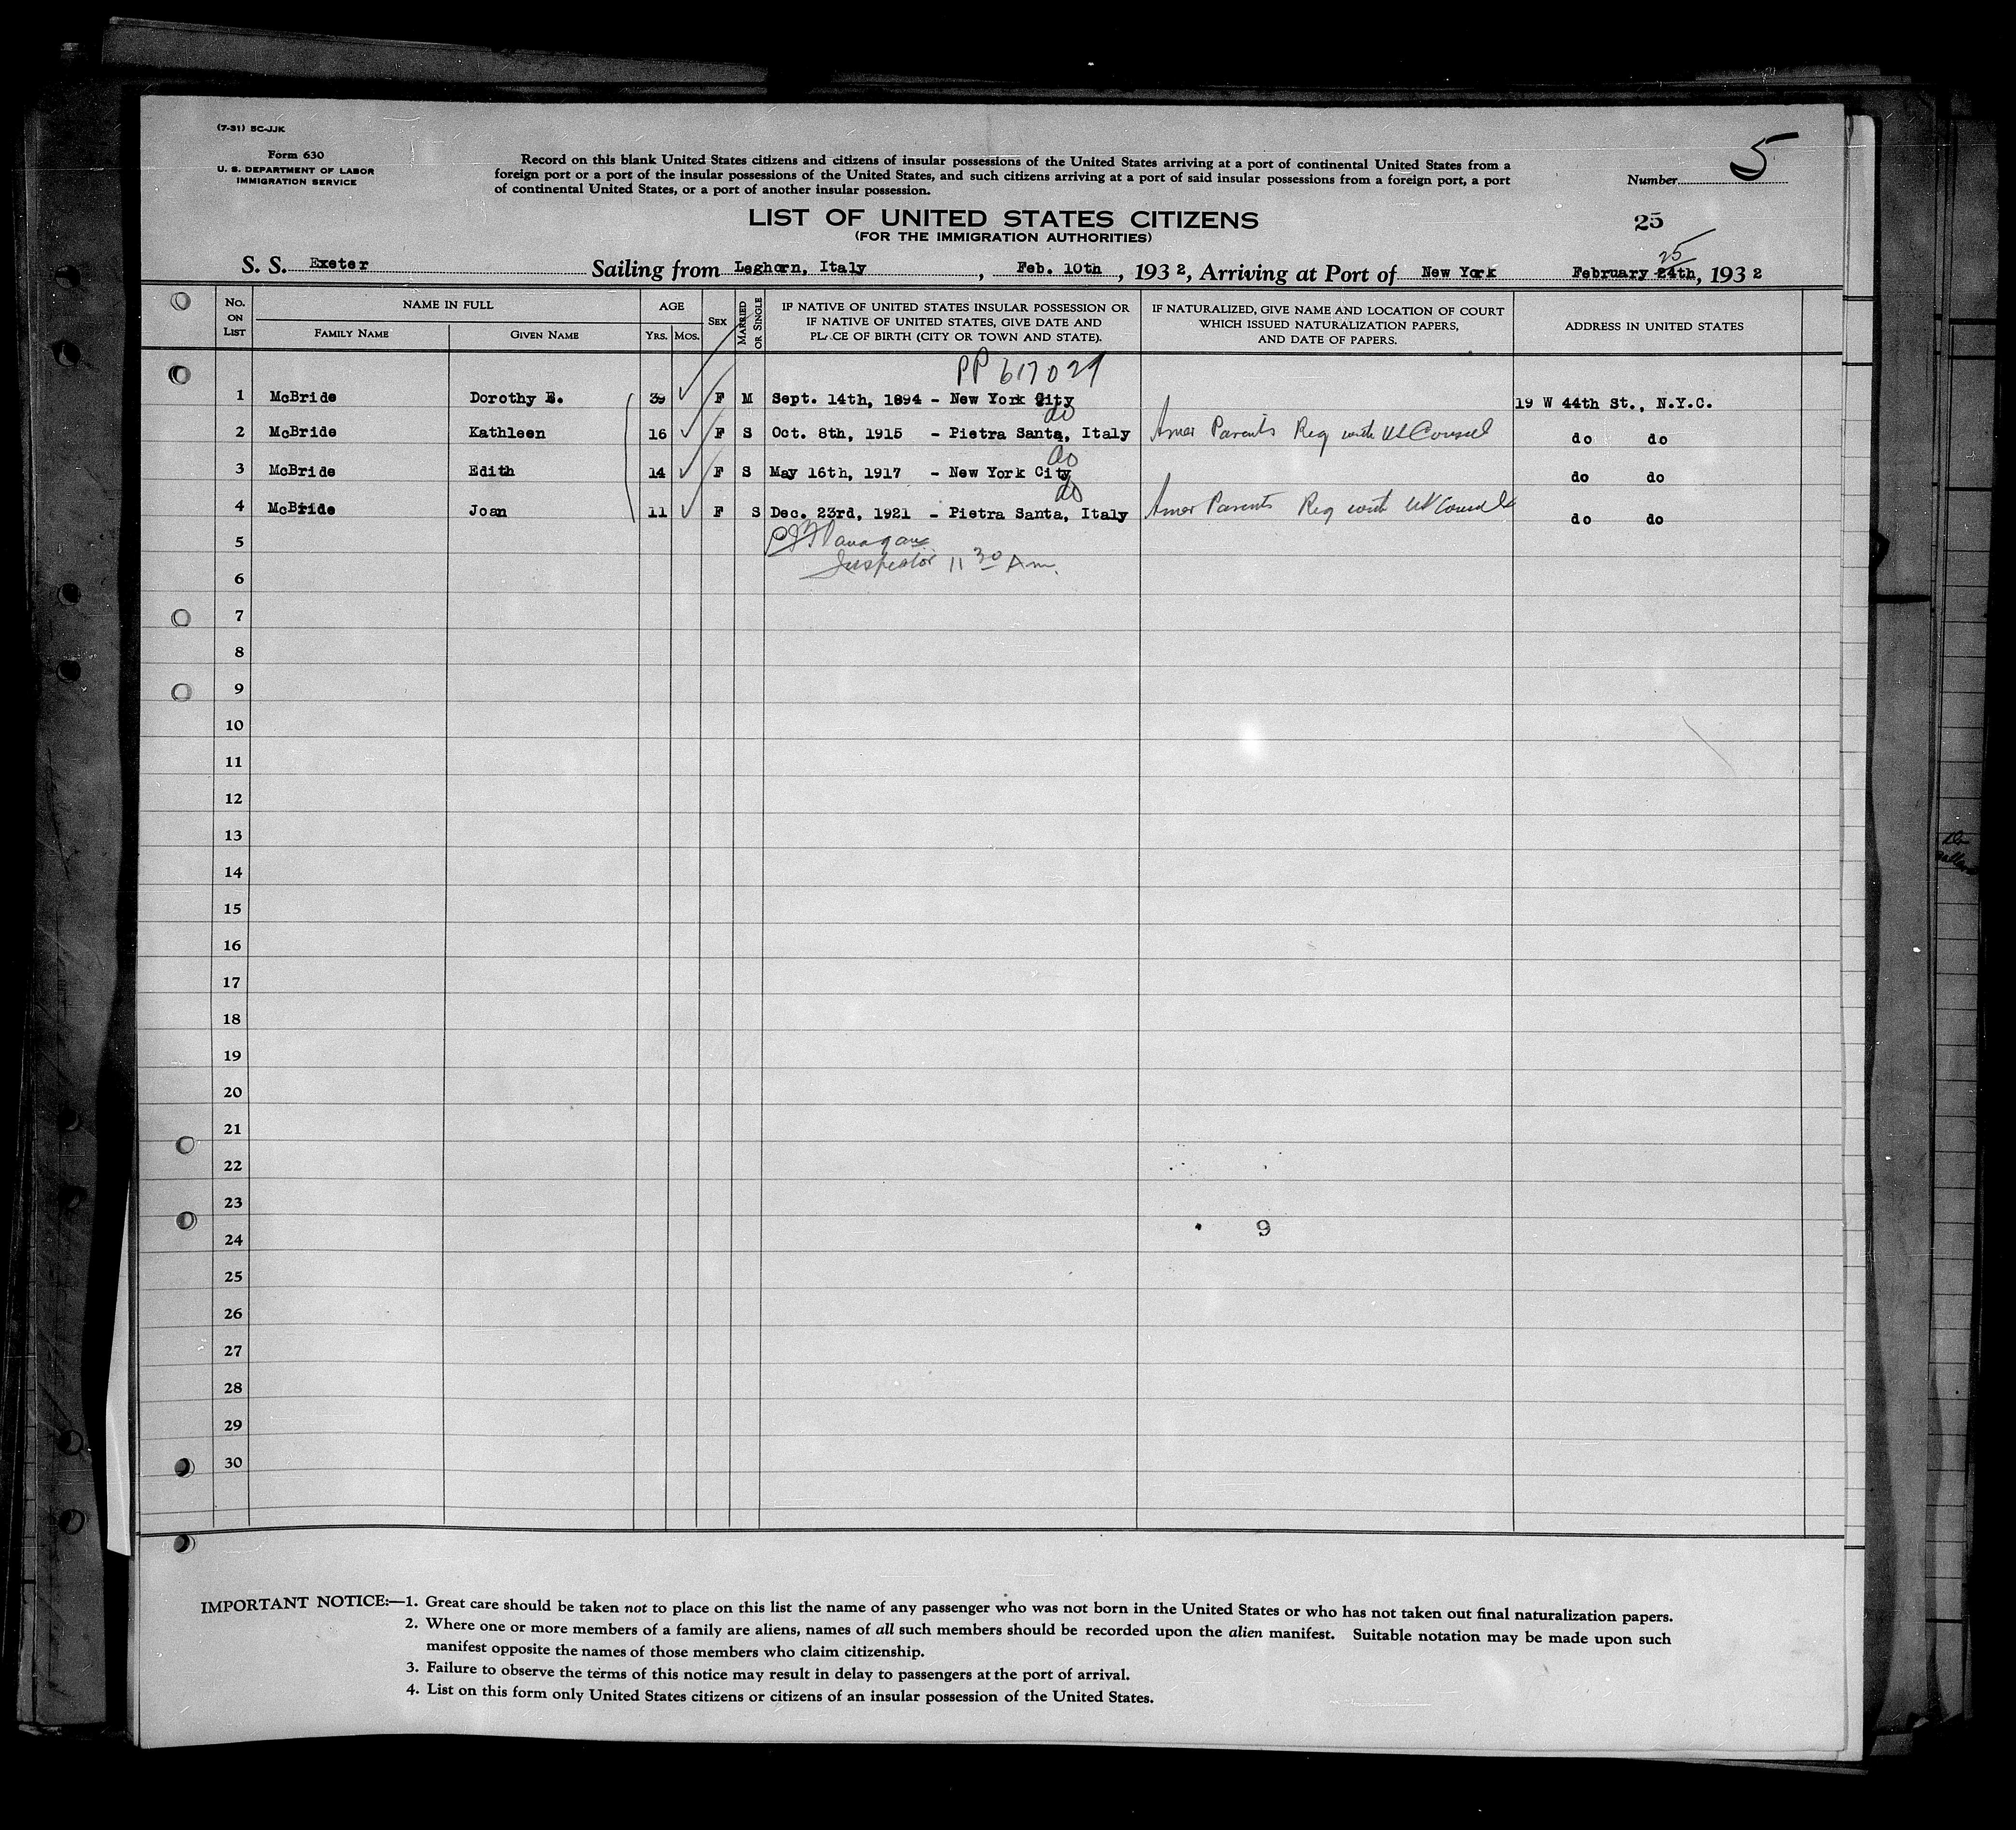 (7-31) BC-JJK
Form 630
U. S. DEPARTMENT OF LABOR
IMMIGRATION SERVICE
Record on this blank United States citizens and citizens of insular possessions of the United States arriving at a port of continental United States from a
foreign port or a port of the insular possessions of the United States, and such citizens arriving at a port of said insular possessions from a foreign port, a port
of continental United States, or a port of another insular possession.
Number 5
LIST OF UNITED STATES CITIZENS
(FOR THE IMMIGRATION AUTHORITIES)
25
25
S. S. Exeter Sailing from Leghorn, Italy, Feb. 10th, 1932, Arriving at Port of New York February 24th, 1932
No. ON LIST NAME IN FULL FAMILY NAME GIVEN NAME AGE YRS. MOS. SEX MARRIED OR SINGLE
IF NATIVE OF UNITED STATES INSULAR POSSESSION OR
IF NATIVE OF UNITED STATES, GIVE DATE AND
PLACE OF BIRTH (CITY OR TOWN AND STATE).
IF NATURALIZED, GIVE NAME AND LOCATION OF COURT
WHICH ISSUED NATURALIZATION PAPERS,
AND DATE OF PAPERS.
ADDRESS IN UNITED STATES
PP 617029
1 McBride Dorothy E. 39 F M Sept. 14th, 1894 - New York City 19 W 44th St., N.Y.C.
do
2 McBride Kathleen 16 F S Oct. 8th, 1915 - Pietra Santa, Italy Amer Parents Reg with US Consul do do
do
3 McBride Edith 14 F S May 16th, 1917 - New York City do do
do
4 McBride Joan 11 F S Dec. 23rd, 1921 - Pietra Santa, Italy Amer Parents Reg with US Consul do do
5
Inspector 11 30 Am.
6
7
8
9
10
11
12
13
14
15
16
17
18
19
20
21
22
23
9
24
25
26
27
28
29
30
IMPORTANT NOTICE:—1. Great care should be taken not to place on this list the name of any passenger who was not born in the United States or who has not taken out final naturalization papers.
2. Where one or more members of a family are aliens, names of all such members should be recorded upon the alien manifest. Suitable notation may be made upon such
manifest opposite the names of those members who claim citizenship.
3. Failure to observe the terms of this notice may result in delay to passengers at the port of arrival.
4. List on this form only United States citizens or citizens of an insular possession of the United States.